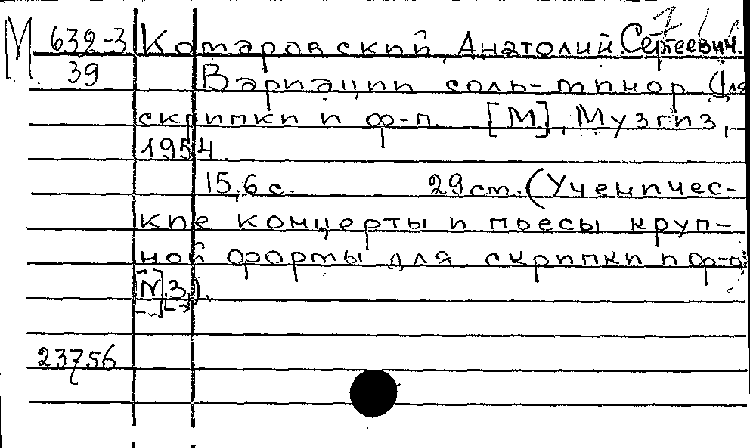 М 632-3 Комаровский, Анатолий Сергеевич.
39 Вариации соль-минор для
скрипки и ф-п. [М], Музгиз,
1954.
15,6 с. 29 см. (Ученичес-
кие концерты и пьесы круп-
ной формы для скрипки и ф-п
23756